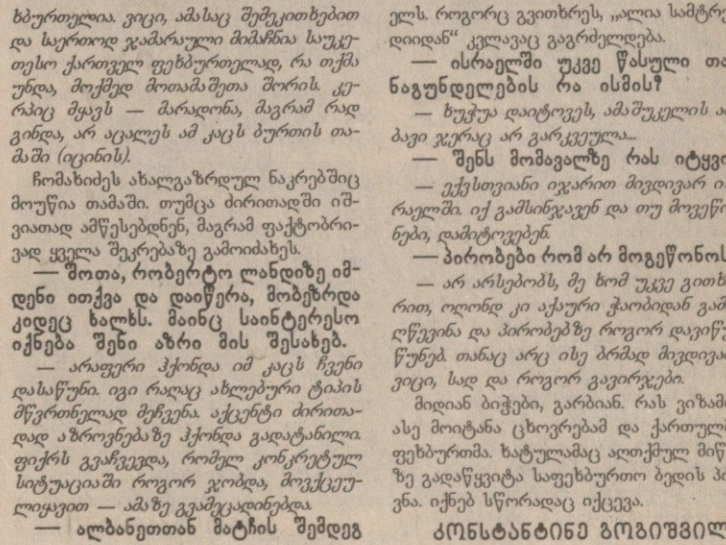 ხბურთელია. ვიცი, ამასაც შემეკითხებით
და საერთოდ ჯამარაული მიმაჩნია საუკე-
თესო ქართველ ფეხბურთელად, რა თქმა
უნდა, მოქმედ მოთამაშეთა შორის. კე-
რპიც მყავს — მარადონა, მაგრამ რად
გინდა, არ აცალეს ამ კაცს ბურთის თა-
მაში (იცინის).
ჩომახიძეს ახალგაზრდულ ნაკრებშიც
მოუწია თამაში. თუმცა ძირითადში იშ-
ვიათად ამწესებდნენ, მაგრამ ფაქტობრი-
ვად ყველა შეკრებაზე გამოიძახეს.
— შოთა, რობერტო ლანდიზე იმ-
დენი ითქვა და დაიწერა, მობეზრდა
კიდეც ხალხს. მაინც საინტერესო
იქნება შენი აზრი მის შესახებ.
— არაფერი ჰქონდა იმ კაცს ჩვენი
დასაწუნი. იგი რაღაც ახლებური ტიპის
მწვრთნელად მეჩვენა. აქცენტი ძირითა-
დად აზროვნებაზე ჰქონდა გადატანილი.
ფიქრს გვაჩვევდა, რომელ კონკრეტულ
სიტუაციაში როგორ ჯობდა, მოვქცეუ-
ლიყავით — ამაზე გვამეცადინებდა.
— ალბანეთთან მატჩის შემდეგ
ელს. როგორც გვითხრეს, „ალია სამტრე
დიიდან“ კვლავაც გაგრძელდება.
— ისრაელში უკვე წასული თა
ნაგუნდელების რა ისმის?
— ხუჭუა დაიტოვეს, ამაშუკელის ა
ბავი ჯერაც არ გარკვეულა...
— შენს მომავალზე რას იტყვი
— ექვსთვიანი იჯარით მივდივარ ი
რაელში. იქ გამსინჯავენ და თუ მოვეწო
ნები, დამიტოვებენ.
— პირობები რომ არ მოგეწონოს
— არ არსებობს, მე ხომ უკვე გითხ
რით, ოღონდ კი აქაური ჭაობიდან გამ
ღწევინა და პირობებზე როგორ დავიწუ
წუნებ. თანაც არც ისე ბრმად მივდივა
ვიცი, სად და როგორ გავირჯები.
მიდიან ბიჭები, გარბიან. რას ვიზამთ
ასე მოიტანა ცხოვრებამ და ქართულმ
ფეხბურთმა. ხატულამაც აღთქმულ მიწ
ზე გადაწყვიტა საფეხბურთო ბედის
ვნა. იქნებ სწორადაც იქცევა.
ᲙᲝᲜᲡᲢᲐᲜᲢᲘᲜᲔ ᲒᲝᲒᲘᲨᲕᲘᲚ